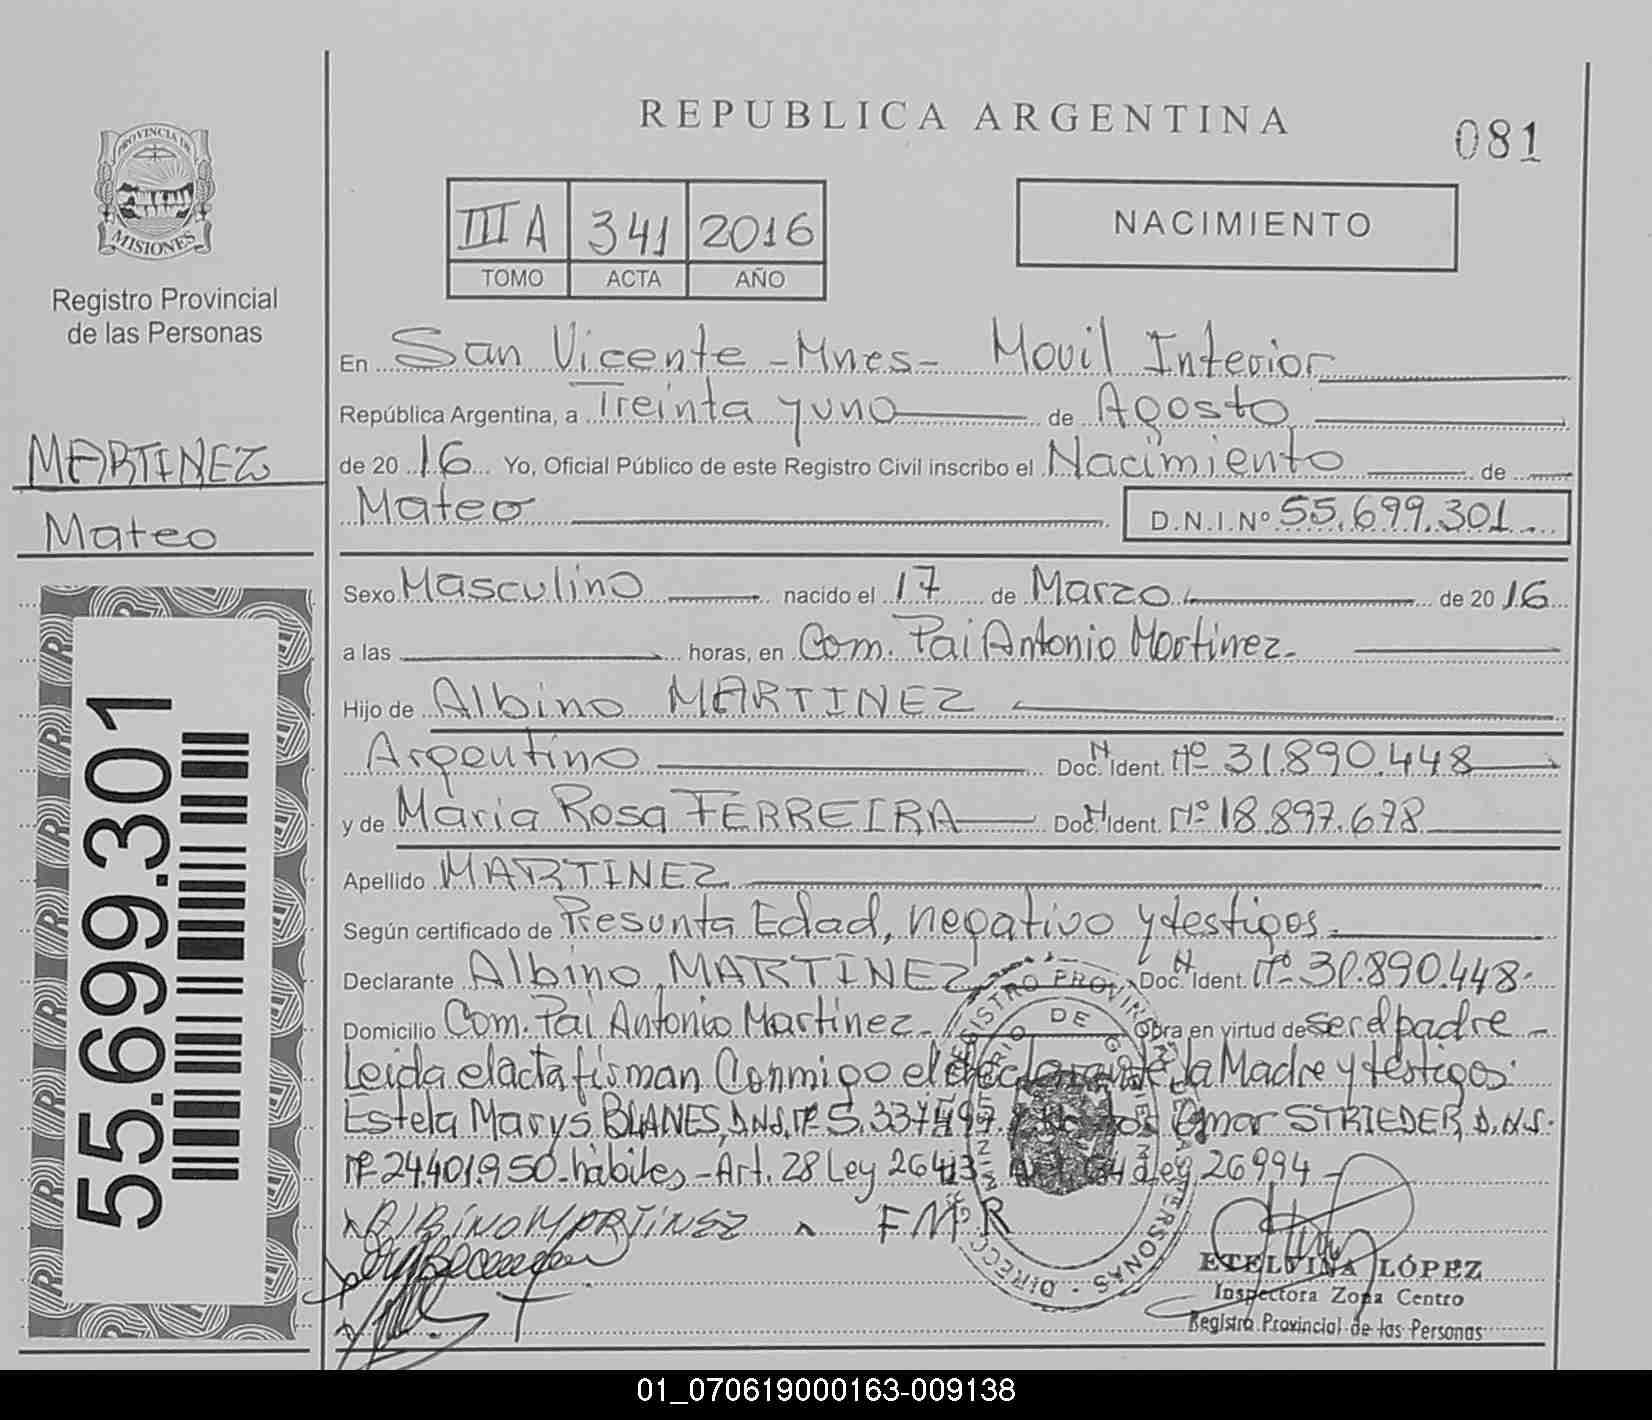 REPUBLICA ARGENTINA
081
PROVINCIA DE
MISIONES
Registro Provincial
de las Personas
III A 341 2016
TOMO ACTA AÑO
NACIMIENTO
MARTINEZ
Mateo
55.699.301
En San Vicente - Mnes - Movil Interior
República Argentina, a Treinta y uno de Agosto
de 20 16 Yo, Oficial Público de este Registro Civil inscribo el Nacimiento de
Mateo D.N.I.Nº 55.699.301
Sexo Masculino nacido el 17 de Marzo de 20 16
a las horas, en Com. Pai Antonio Martinez-
Hijo de Albino MARTINEZ
Argentino Doc. N Ident. Nº 31.890.448
y de Maria Rosa FERREIRA Doc. N Ident. Nº 18.897.678
Apellido MARTINEZ
Según certificado de Presunta Edad, negativo y testigos.
Declarante Albino MARTINEZ Doc. N Ident. Nº 31.890.448.
Domicilio Com. Pai Antonio Martinez - Obra en virtud de ser el padre -
Leida el acta firman Conmigo el declarante, la Madre y testigos:
Estela Marys BLANES, D.N.I. Nº 5.337.497 Omar STRIEDER, D.N.I.
Nº 24.401.950 - hábiles - Art. 28 Ley 26413 Ley 26994 -
ALBINO MARTINEZ F M R
ETELVINA LÓPEZ
Inspectora Zona Centro
Registro Provincial de las Personas
01_070619000163-009138